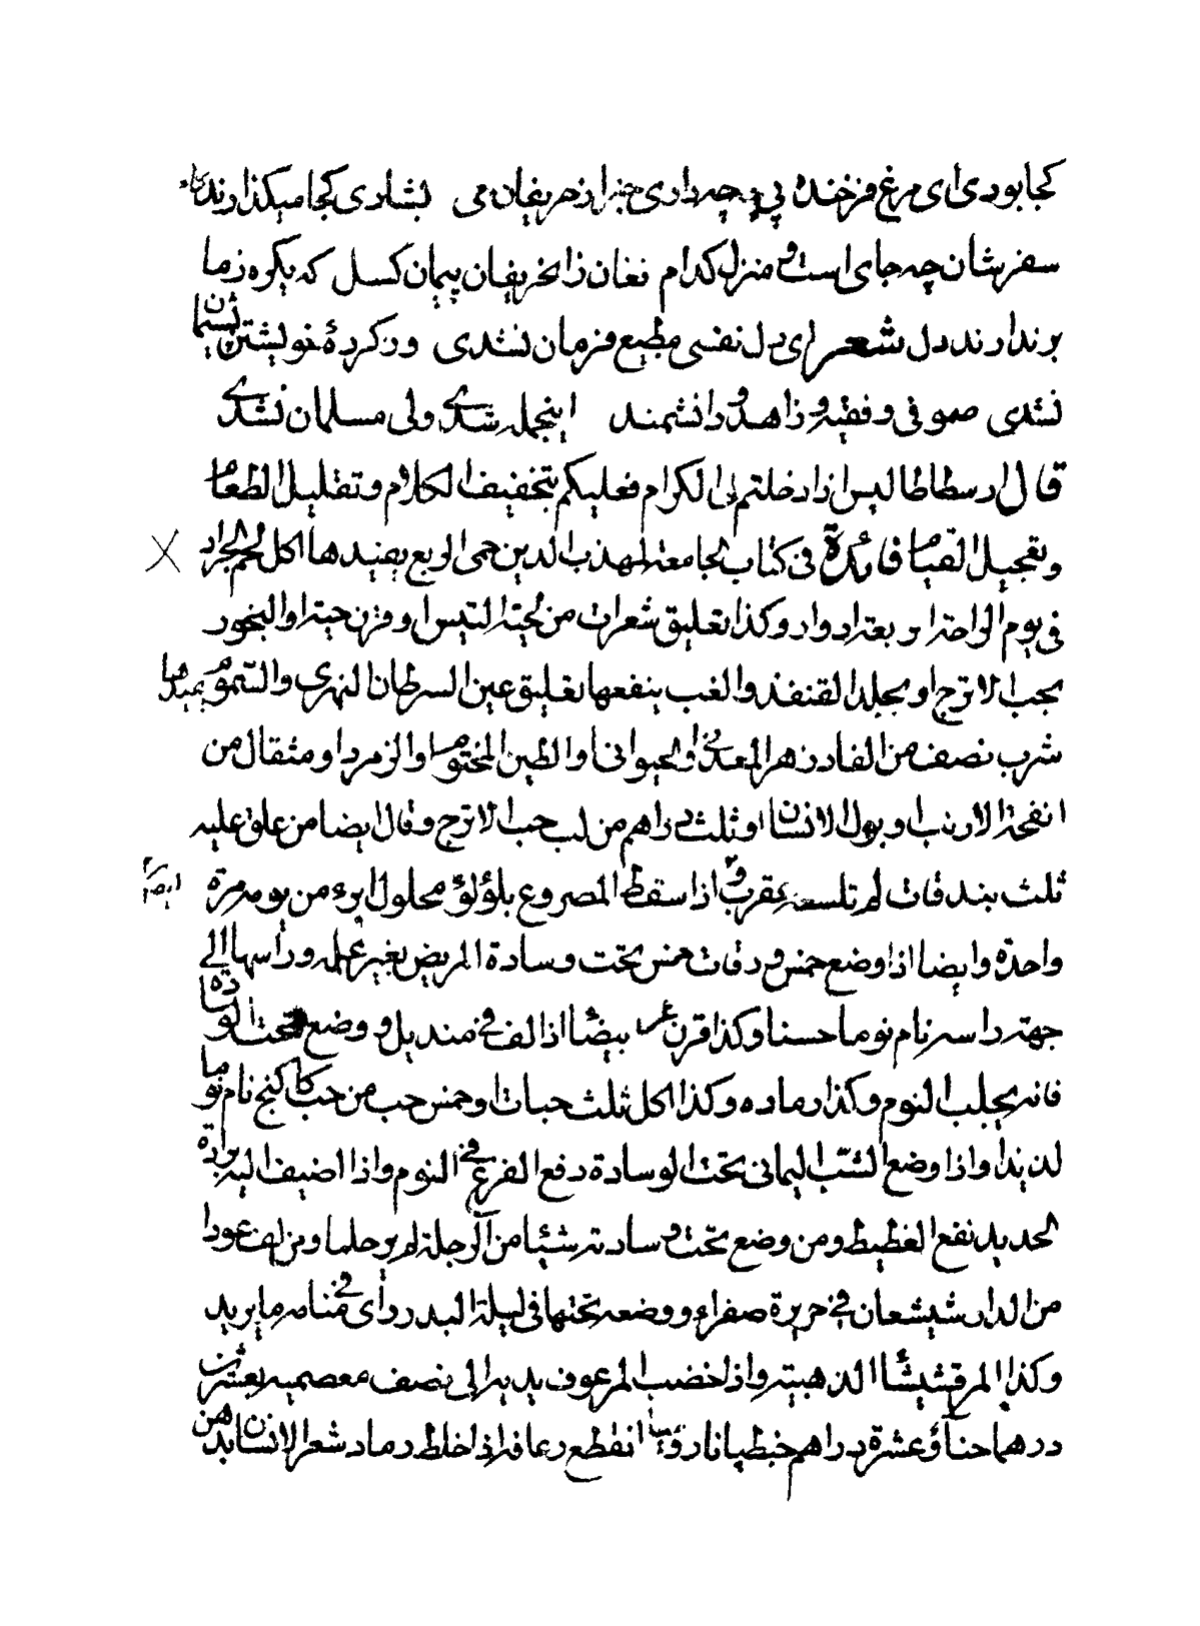 کجا بودی ای مرغ فرخنده پی چه داری خبر از حریفان می بشادی کجا میگذارند کام
سفرشان چه جای است و منزل کدام نغان زانحریفان پیمان کسل که یکره ز ما
برندارند دل شعر ای دل نفسی مطیع فرمان نشدی وز کردهٔ خویشتن پشیمان
نشدی صوفی و فقیه و زاهد و دانشمند اینجمله شدی ولی مسلمان نشدی
قال ارسطاطالیس اذا دخلتم الی الکرام فعلیکم بتخفیف الکلام وتقلیل الطعام
وتعجیل القیام فائدة فی کتاب الجامعة لمهذب الدین حمی الربع یفیدها اکل لحم الجراد
فی یوم الراحة اربعة ادوار وکذا تعلیق شعرات من لحیة التیس او قرن حیة او البخور
بحب الاترج او بجلد القنفذ والغب ینفعها تعلیق عین السرطان النهری والسموم یفیدها
شرب نصف من الفادزهر المعدنی او الحیوانی او الطین المختوم او الزمرد او مثقال من
انفحة الارنب او بول الانسان او ثلث دراهم من لب حب الاترج وقال ایضا من علق علیه
ثلث بندقات لم تلسعه عقرب و اذا سقط المصروع بلؤلؤ محلول ابرء من یومه مرة ایضا
واحدة وایضا اذا وضع خمس ورقات خس تحت وسادة المریض بغیر علمه وراسها الی
جهة راسه نام نوما حسنا وکذا قرن عنز بیضا اذا لف فی مندیل و وضع تحت الوسادة
فانه یجلب النوم وکذا رماده وکذا اکل ثلث حبات او خمس حب من حب کاکنج نام نوما
لذیذا واذا وضع الشب الیمانی تحت الوسادة دفع الفزع فی النوم واذا اضیف الیه برادة
الحدید نفع الغطیط ومن وضع تحت وسادته شیئا من الرجلة لم یر حلما ومن لف عودا
من الدار شیشعان فی حریرة صفراء ووضعه تحتها فی لیلة البدر رأی فی منامه ما یرید
وکذا المرقشیشا الذهبیة واذا خضب المرعوف یدیه الی نصف معصمیه بعشرین
درهما حناء وعشرة دراهم خطیانا رومیا انقطع رعافه اذا خلط رماد شعر الانسان بدهن